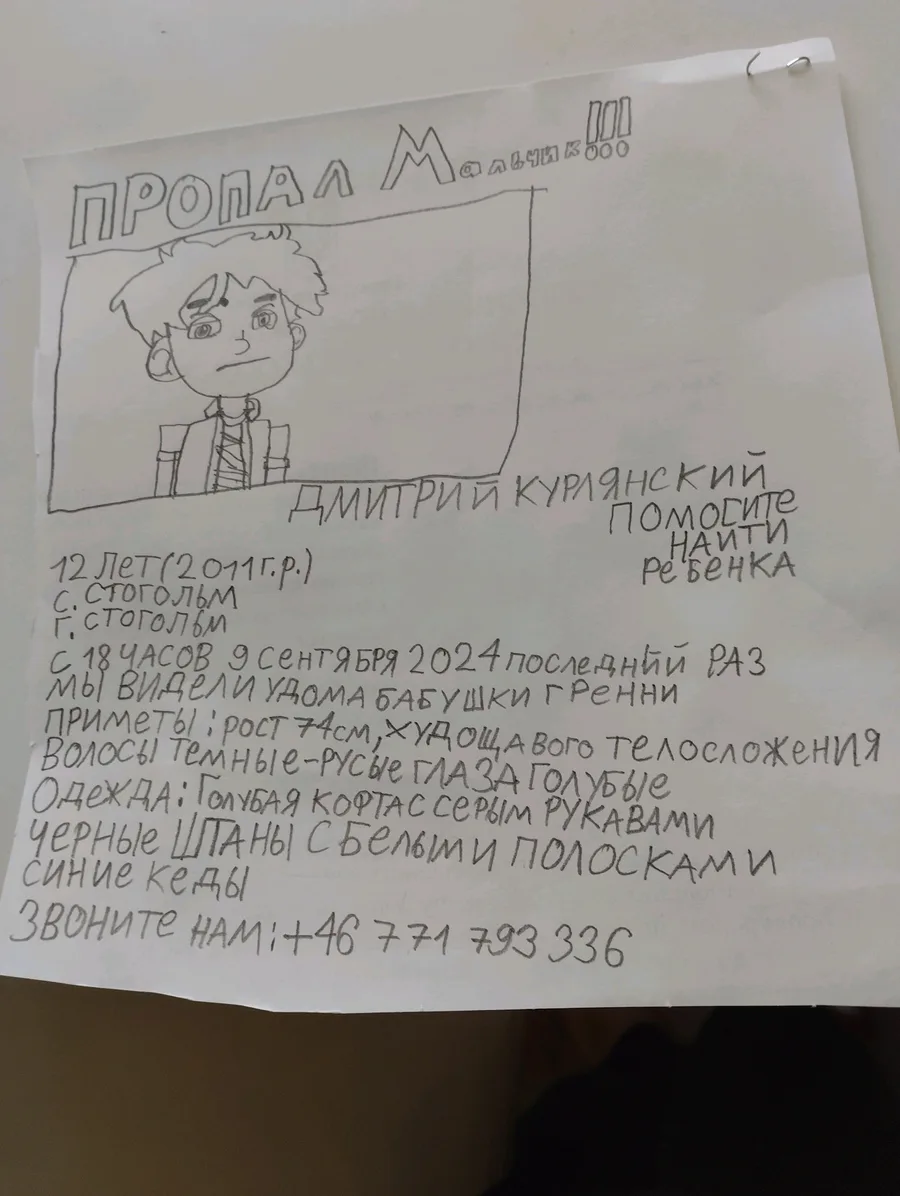 ПРОПАЛ Мальчик!!!
ДМИТРИЙ КУРЛЯНСКИЙ
ПОМОГИТЕ
НАЙТИ
РЕБЕНКА
12 ЛЕТ (2011г.р.)
с. СТОГОЛЬМ
г. СТОГОЛЬМ
С 18 ЧАСОВ 9 СЕНТЯБРЯ 2024 ПОСЛЕДНИЙ РАЗ
МЫ ВИДЕЛИ УДОМА БАБУШКИ ГРЕННИ
ПРИМЕТЫ: РОСТ 74см, ХУДОЩАВОГО ТЕЛОСЛОЖЕНИЯ
ВОЛОСЫ ТЕМНЫЕ-РУСЫЕ ГЛАЗА ГОЛУБЫЕ
ОДЕЖДА: ГОЛУБАЯ КОФТА С СЕРЫМ РУКАВАМИ
ЧЕРНЫЕ ШТАНЫ С БЕЛЫМИ ПОЛОСКАМИ
СИНИЕ КЕДЫ
ЗВОНИТЕ НАМ: +46 771 793 336